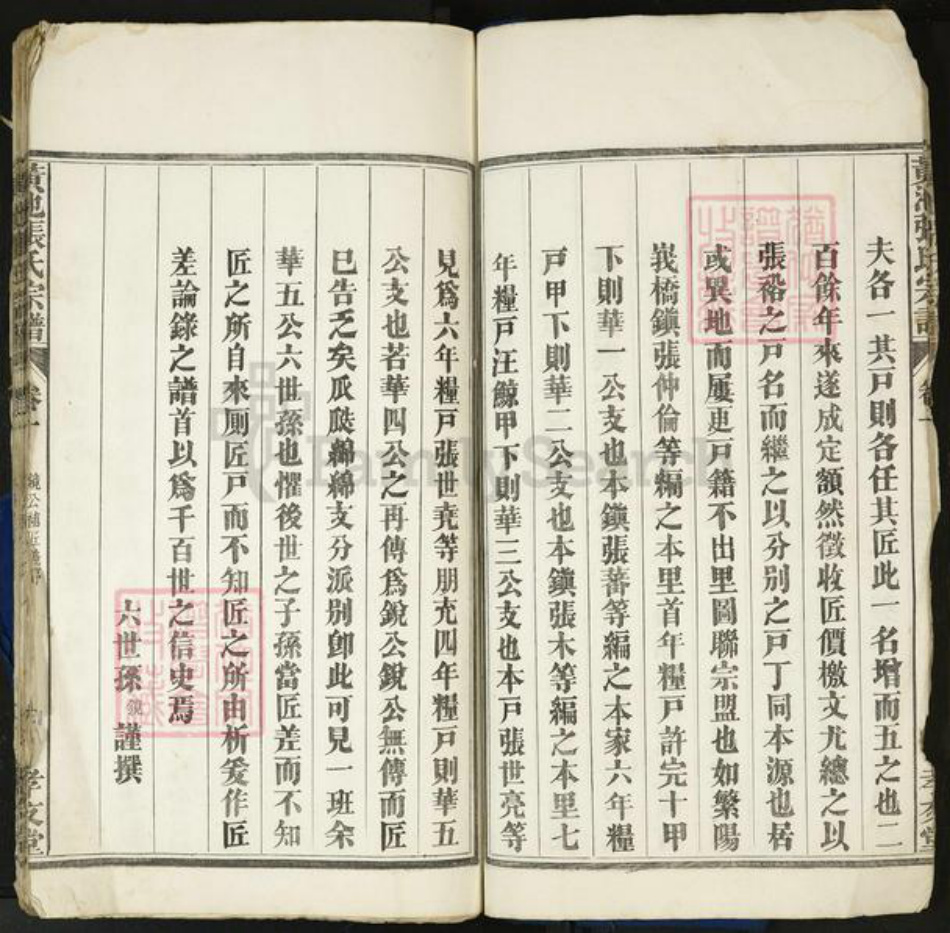 黃池張氏宗譜
卷一
孝友堂
夫各一其戸則各任其匠此一名增而五之也二
百餘年來遂成定額然徵收匠價檄文尤總之以
張裕之戸名而繼之以分别之戸丁同本源也居
或異地而屢更戸籍不出里圖聯宗盟也如繁陽
峩橋鎭張仲倫等編之本里首年糧戸許完十甲
下則華一公支也本鎭張蕃等編之本家六年糧
戸甲下則華二公支也本鎭張木等編之本里七
年糧戸汪鯨甲下則華三公支也本戸張世亮等
見爲六年糧戸張世堯等朋充四年糧戸則華五
公支也若華四公之再傳爲銳公銳公無傳而匠
已告乏矣瓜瓞綿綿支分派别卽此可見一班余
華五公六世孫也懼後世之子孫當匠差而不知
匠之所自來厠匠戸而不知匠之所由析爰作匠
差論錄之譜首以爲千百世之信史焉
六世孫鎭謹撰
黃池張氏宗譜
卷一
孝友堂
FamilySearch